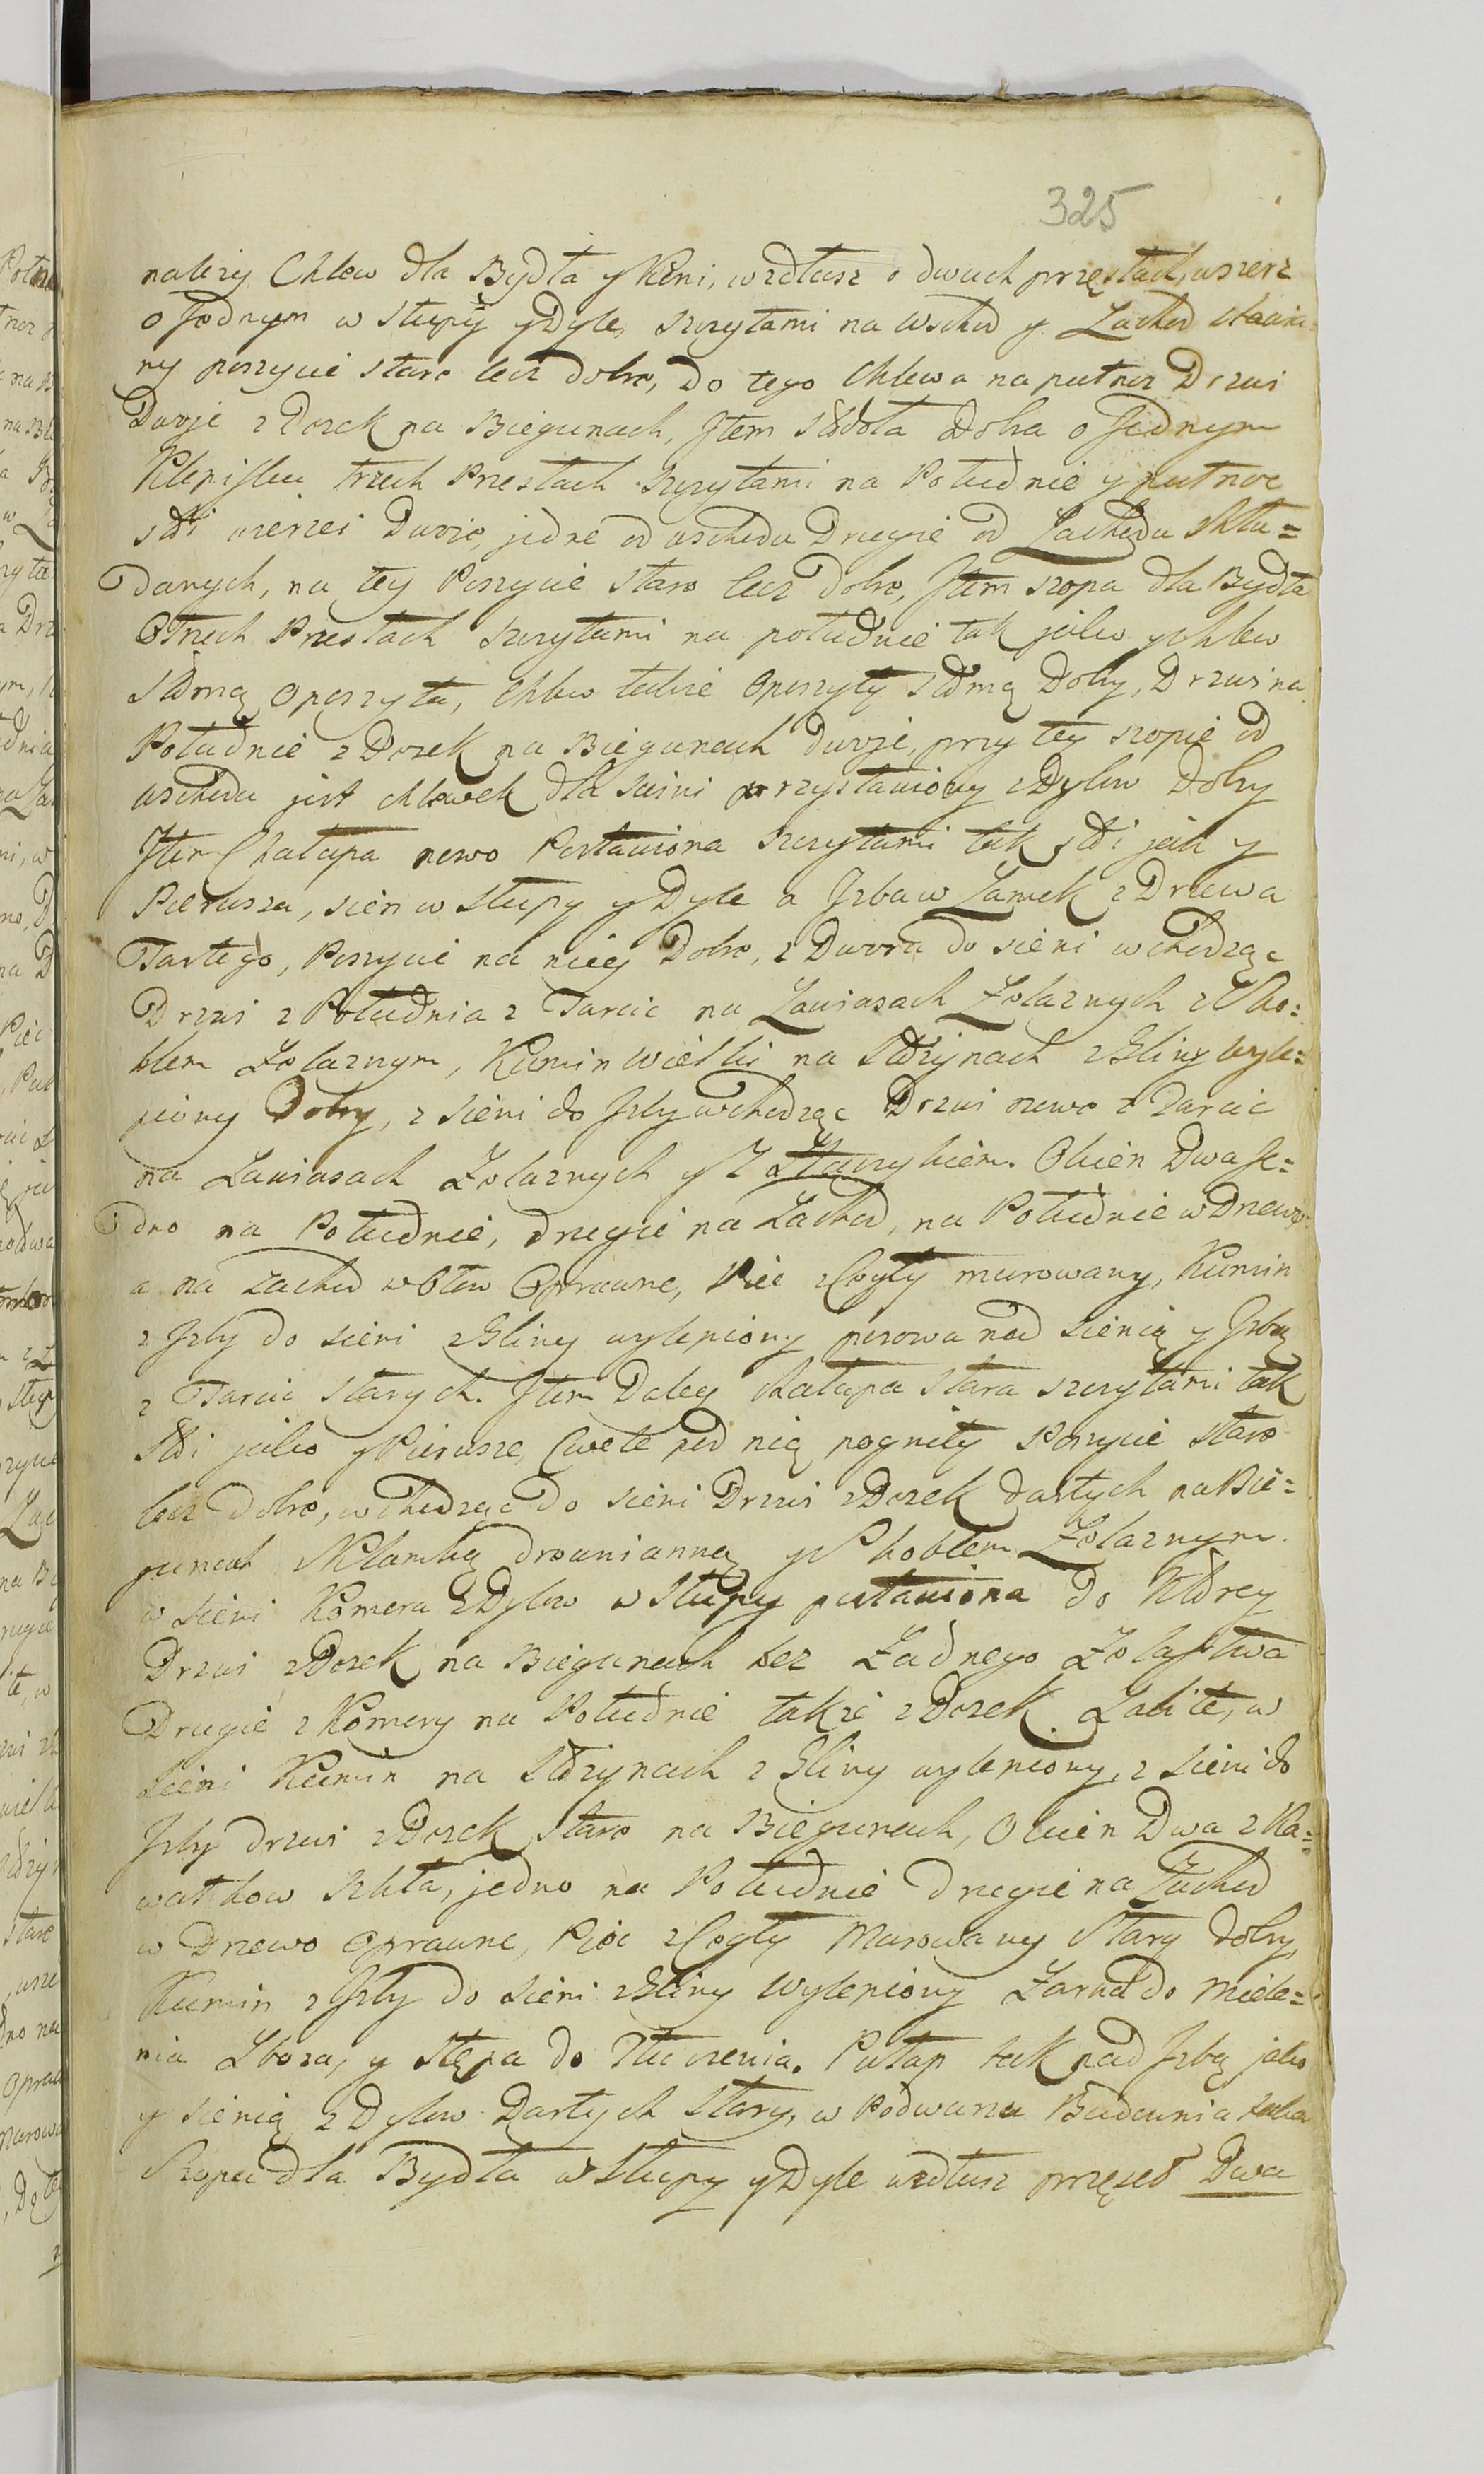 325
nalezy Chlew dla Bydła y Koni, wzdłusz o dwuch przęstach, wszerz
o Jednym w słupy y Dyle, szczytami na Wschod y Zachod stawia=
ny poszycie stare lecz dobre, Do tego Chlewa na putnoz Drzwi
Dwoje z Dosek na Biegunach, Jtem Stodoła Dobra o Jednym
Klepisku trzech Przestach szczytami na Południe y putnoc
stoi wierzei Dwoje, jedne od wschodu Drugie od Zachodu Skła=
Danych, na tey Poszycie stare lecz Dobre, Jtem szopa dla Bydła
O Trzech Przestach szczytami na południe tak jako y chlew
Słomą oposzyta, chlew takze oposzyty słomą Dobry, Drzwi na
Południe z Dosek na Biegunach dwoje, przy tey szopie od
wschodu jest chlewek dla swini przystawiony z Dylow Dobry
Jtem Chałupa nowo Postawiona szczytami tak stoi jak y
Pierwsza, sien w słupy y Dyle a Jzba w Zamek z Drzewa
Tartego, Poszycie na niey Dobre, z Dworu do sieni wchodząc
Drzwi z Południa z Tarcic na Zawiasach Zelaznych z Sko=
blem Zelaznym, Kumin wielki na Słozynach z Gliny wyle=
piony Dobry, z sieni do Jzby wchodząc Drzwi nowe z Tarcic
na Zawiasach Zelaznych y Z Haczykiem. Okien Dwa Je=
dno na Południe, drugie na Zachod, na Południe w Drzewo
a na zachod w Ołow Oprawne, Piec z Cegły murowany, Kumin
z Jzby do sieni z Gliny wylepiony posowa nad sienią y Jzbą
z Tarcic starych. Jtem Daley chałupa stara szczytami tak
stoi jako y Pierwsze, Cwele pod nią pogniły Poszycie stare
lecz dobre, wchodząc do sieni Drzwi z Dosek dartych na Bie=
gunach Sklamką drewnianną y S skoblem Zelaznym.
w sieni Komora z Dylow w słupy postawiona do Ktorey
Drzwi z Dosek na Biegunach bez Zadnego Zelastwa
Drugie z Komory na Południe takze z Dosek Zabite, w
sieni Kumin na Słozynach z Gliny wylepiony, z sieni do
Jzby drzwi z Dosek stare na Biegunach, Okien Dwa z Ka=
wałkow szkła, jedno na Południe drugie na Zachod
w Drzewo oprawne, Piec z Cegły Murowany Stary dobry,
Kumin z Jzby do sieni z Gliny Wylepiony Zarna do miele=
nia Zboza, y stępa do Tłuczenia. Pułap tak nad Jzbą jako
y sienią z Dylow Dartych stary, w Podworzu Budownia
Szopa dla Bydła w słupy y Dyle wzdłusz przęseł Dwa